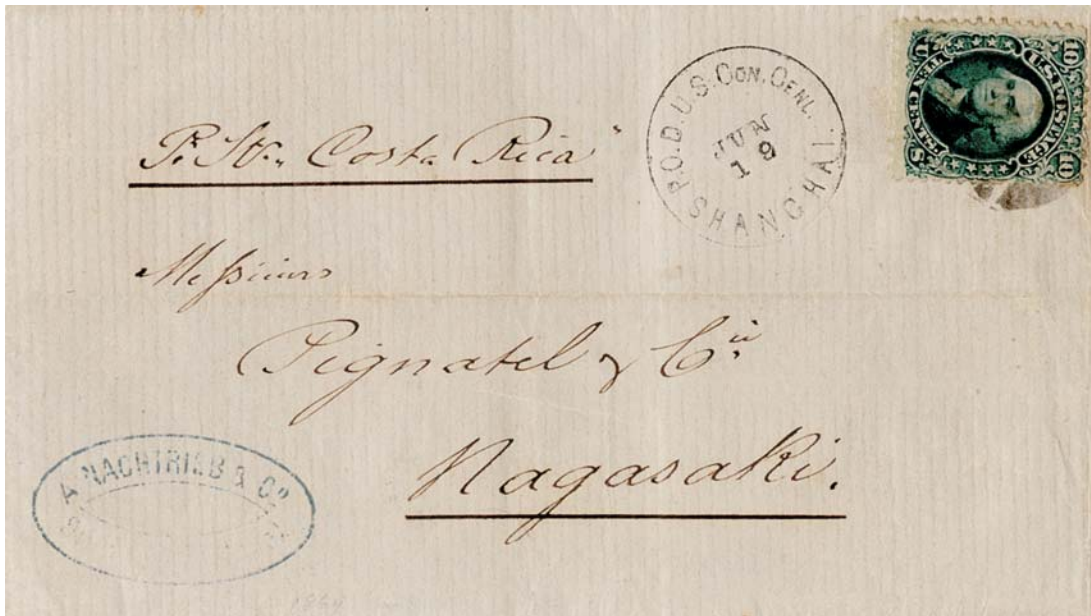 P. Str. „Costa Rica"
P.O.D.U.S. CON. GENL.
JUN
19
SHANGHAI
U.S. POSTAGE.
10 10
U S
TEN CENTS
Messieurs
Pignatel & Cie
Nagasaki.
A. NACHTRIEB & Co.
1869